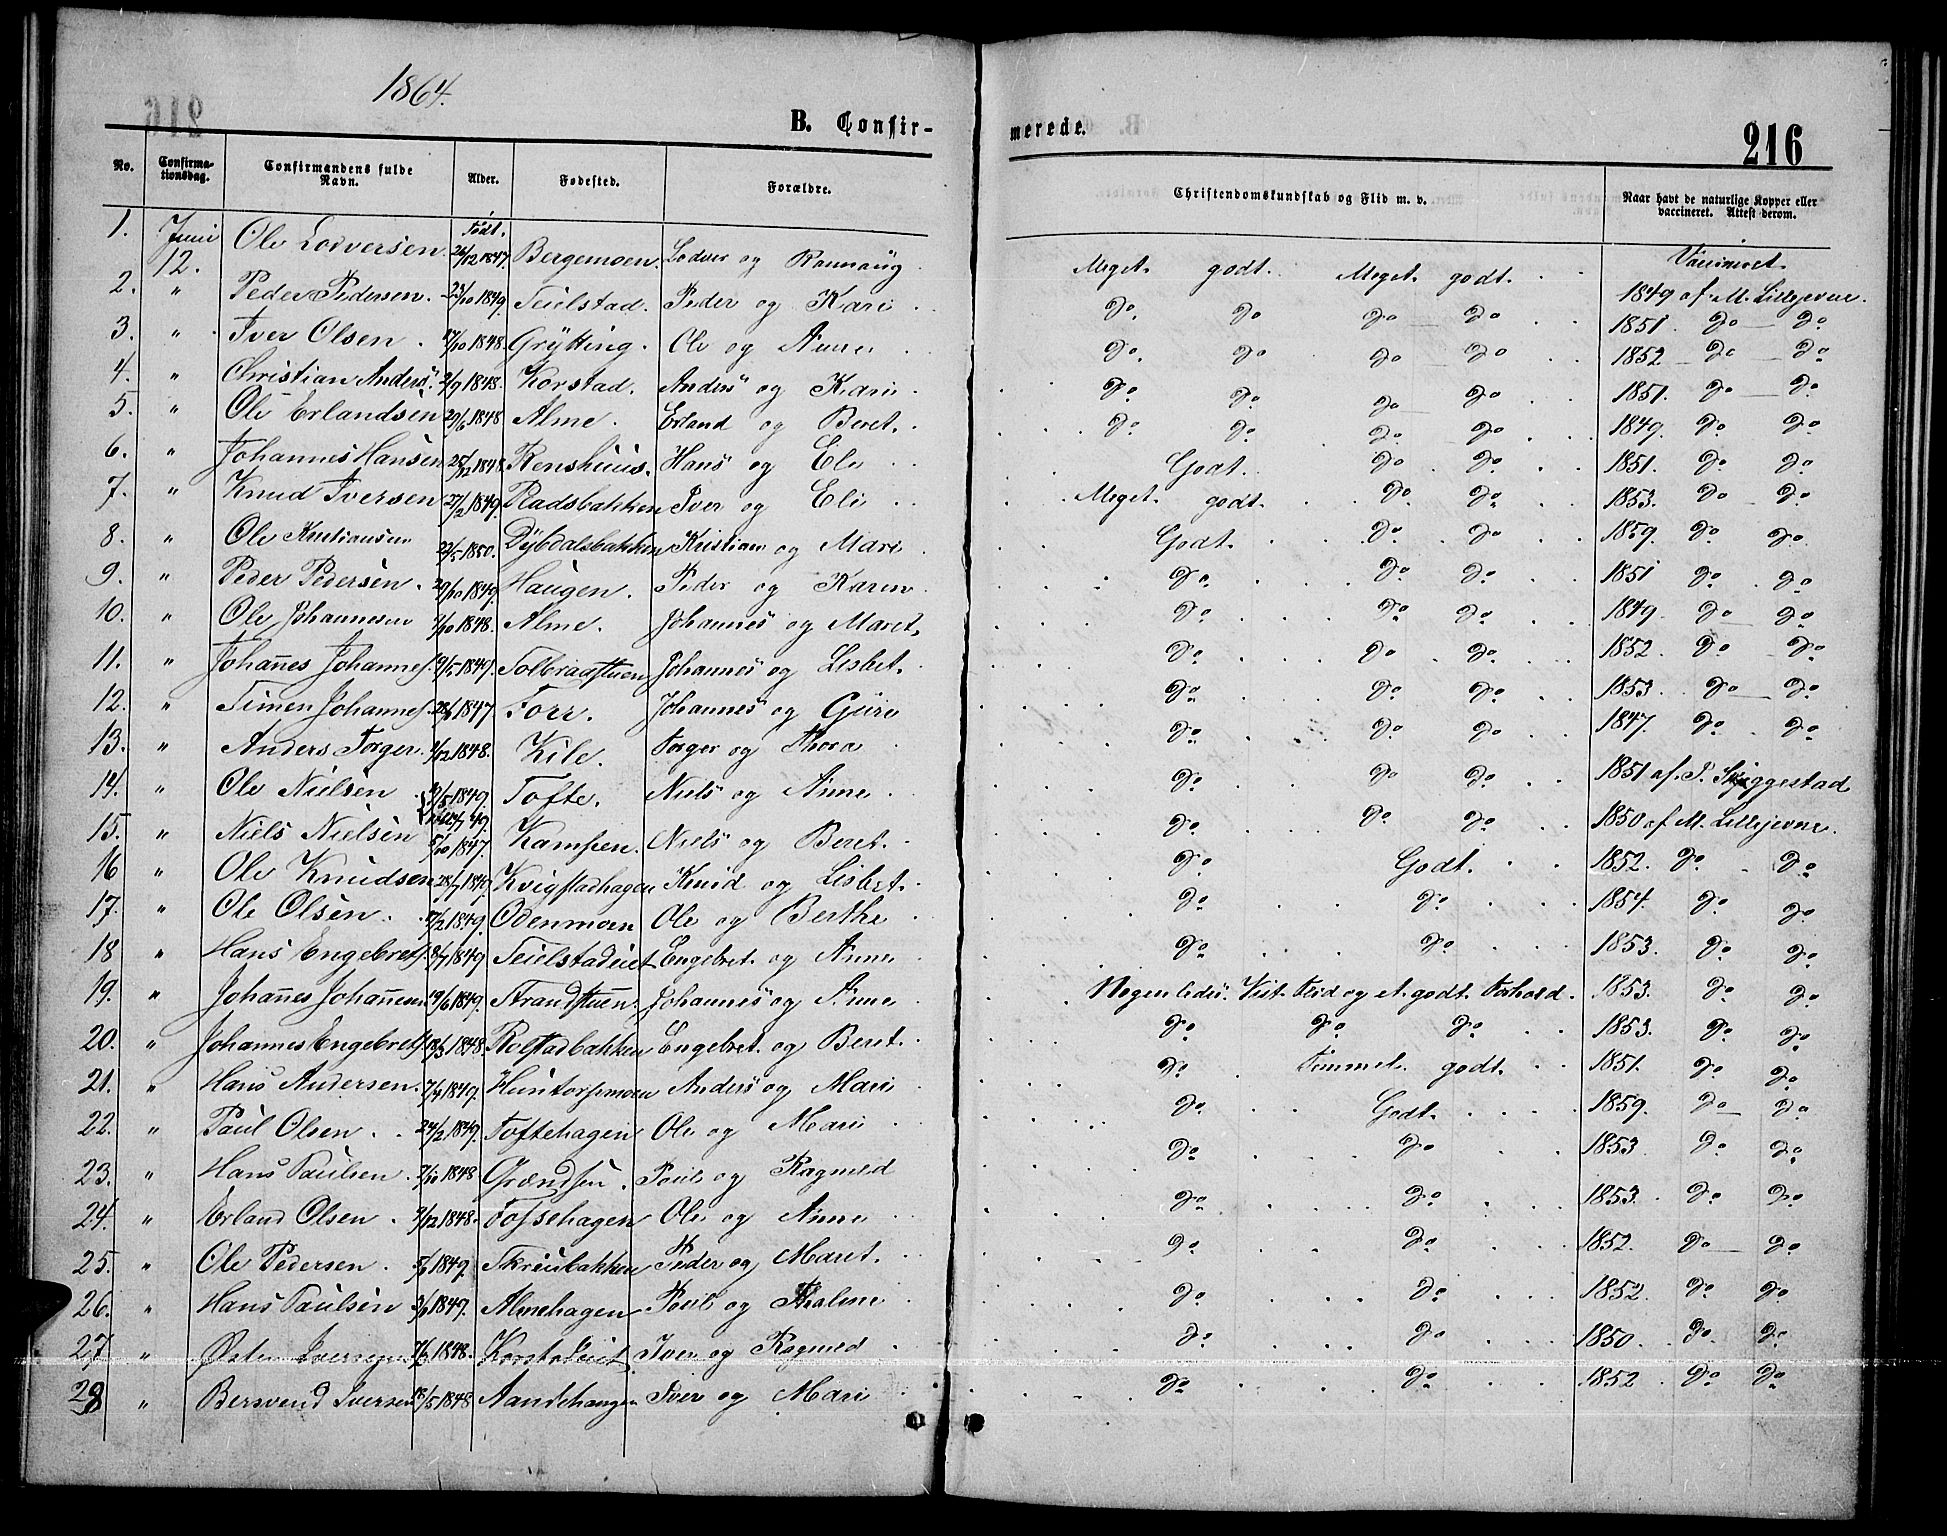 1864.
B. Confir-
merede.
216
No. Confirma-tionsdag. Confirmandens fulde Navn. Alder. Fødested. Forældre. Christendomskundskab og Flid m. v. Naar havt de naturlige Kopper eller vaccineret. Attest derom.
Født. Vaccineret.
1. Juni 12. Ole Lodversen 26/12 1847. Bergemoen. Lodver og Rannaug Meget godt. Meget godt. 1849 af M. Lillejevne.
2. " Peder Pedersen. 23/10 1849. Teielstad. Peder og Kari do. do do do 1851. do do
3. " Iver Olsen. 17/10 1848. Grytting. Ole og Anne do. do do do 1852 do do
4. " Christian Anders. 2/9 1848. Korstad. Anders og Kari do do do do 1851. do do
5. " Ole Erlandsen 29/6 1848 Alme. Erland og Beret. do do do do 1849. do do
6. " Johannes Hansen 25/12 1848. Renshuus. Hans og Eli Godt. do do 1851. do do
7. " Knud Iversen 27/2 1849. Radsbakken Iver og Eli Meget godt. do do 1853. do do
8. " Ole Kristiansen 22/5 1850. Dybdalsbakken Kristian og Mari Godt. do do 1859. do do
9. " Peder Pedersen. 29/10 1849. Haugen. Peder og Karen do. do do 1851 do do
10. " Ole Johannesen 1848. Alme. Johannes og Maret. do do do 1849. do do
11. " Johañes Johannes. 9/5 1849. Tolbradstuen Johannes og Lisbet. do do do 1852. do do
12. " Simen Johannes. 1847 Forr. Johannes og Guro do do do 1853. do do
13. " Anders Torger. 1848. Kile. Torger og Thora do do do 1847. do do
14. " Ole Nielsen 1849. Tofte. Niels og Anne do do do 1851 af P. Skiggestad
15. " Niels Nielsen 5/10 1847. Kampen. Niels og Beret. do do do 1850 af M. Lillejevne.
16 " Ole Knudsen 28/7 1849. Kvigstadhagen Knud og Lisbet. do Godt. 1852. do do
17. " Ole Olsen. 17/2 1849. Odenmoen Ole og Berthe do do 1854. do do
18 " Hans Engebrets. 8/7 1849 Teielstadeiet Engebret og Anne do do 1853. do do
19. " Johañes Johañesen 19/6 1849. Strandstuen. Johannes og Anne Nogenledes. Vist Flid og et godt Forhold. 1853. do do
20. " Johannes Engebrets. 18/3 1848. Rolstadbakken Engebret og Beret. do do do 1853. do do
21. " Hans Andersen. 7/4 1849. Huntorpmoen Anders og Mari do Temmel. godt. 1851. do do
22. " Paul Olsen. 24/2 1849. Toftehagen Ole og Mari do Godt. 1859. do do
23. " Hans Paulsen. 7/10 1848 Grændsen. Poul og Ragned do do 1853 do do
24. " Erland Olsen. 7/12 1848. Fossehagen Ole og Anne do do 1853. do do
25. " Ole Pedersen. 1849. Skreubakken Peder og Maret. do do 1852. do do
26. " Hans Paulsen 1849. Almehagen Poul og do do 1852. do do
27. " Østen Iversen 1848. Korstadeiet Iver og Ragned do do 1850. do do
28 " Bersvend Iversen 18/5 1848 Aandehaugen Iver og Mari do do 1852 do do